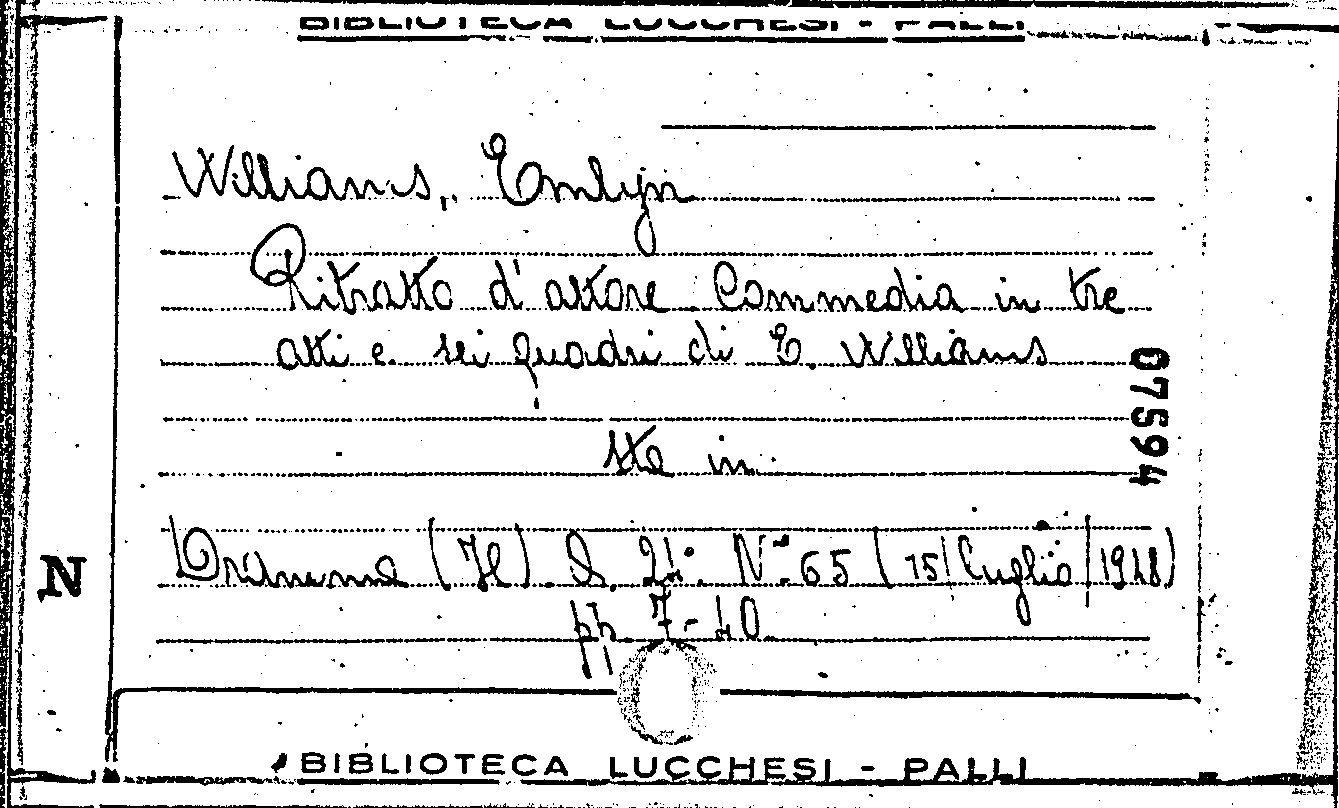 BIBLIOTECA LUCCHESI - PALLI
Williams, Emlyn
Ritratto d'attore Commedia in tre
atti e sei quadri di E. Williams
07594
Sta in
Dramma (Il) A. 24º. Nº 65 (15/Luglio/1948)
N
pp. 7-40
BIBLIOTECA LUCCHESI - PALLI